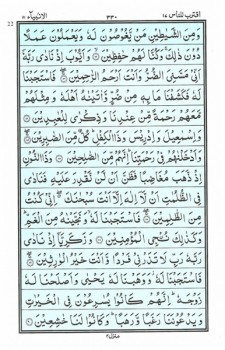 اقترب للناس ١٧
٣٣٠
الانبيآء ٢١
22
وَمِنَ الشَّيٰطِيْنِ مَنْ يَّغُوْصُوْنَ لَهٗ وَيَعْمَلُوْنَ عَمَلًا
دُوْنَ ذٰلِكَ ۚ وَكُنَّا لَهُمْ حٰفِظِيْنَ ۙ وَاَيُّوْبَ اِذْ نَادٰى رَبَّهٗٓ
اَنِّيْ مَسَّنِيَ الضُّرُّ وَاَنْتَ اَرْحَمُ الرّٰحِمِيْنَ ۚ فَاسْتَجَبْنَا
لَهٗ فَكَشَفْنَا مَا بِهٖ مِنْ ضُرٍّ وَّاٰتَيْنٰهُ اَهْلَهٗ وَمِثْلَهُمْ
مَّعَهُمْ رَحْمَةً مِّنْ عِنْدِنَا وَذِكْرٰى لِلْعٰبِدِيْنَ
وَاِسْمٰعِيْلَ وَاِدْرِيْسَ وَذَا الْكِفْلِ ۭ كُلٌّ مِّنَ الصّٰبِرِيْنَ
وَاَدْخَلْنٰهُمْ فِيْ رَحْمَتِنَا ۭ اِنَّهُمْ مِّنَ الصّٰلِحِيْنَ وَذَا النُّوْنِ
اِذْ ذَّهَبَ مُغَاضِبًا فَظَنَّ اَنْ لَّنْ نَّقْدِرَ عَلَيْهِ فَنَادٰى
فِي الظُّلُمٰتِ اَنْ لَّآ اِلٰهَ اِلَّآ اَنْتَ سُبْحٰنَكَ ۖ اِنِّيْ كُنْتُ
مِنَ الظّٰلِمِيْنَ ۚ فَاسْتَجَبْنَا لَهٗ ۙ وَنَجَّيْنٰهُ مِنَ الْغَمِّ ۭ
وَكَذٰلِكَ نُـنْجِي الْمُؤْمِنِيْنَ وَزَكَرِيَّآ اِذْ نَادٰى
رَبَّهٗ رَبِّ لَا تَذَرْنِيْ فَرْدًا وَّاَنْتَ خَيْرُ الْوٰرِثِيْنَ ۚ
فَاسْتَجَبْنَا لَهٗ ۡ وَوَهَبْنَا لَهٗ يَحْيٰى وَاَصْلَحْنَا لَهٗ
زَوْجَهٗ ۭ اِنَّهُمْ كَانُوْا يُسٰرِعُوْنَ فِي الْخَيْرٰتِ
وَيَدْعُوْنَنَا رَغَبًا وَّرَهَبًا ۭ وَكَانُوْا لَنَا خٰشِعِيْنَ
منزل ٤